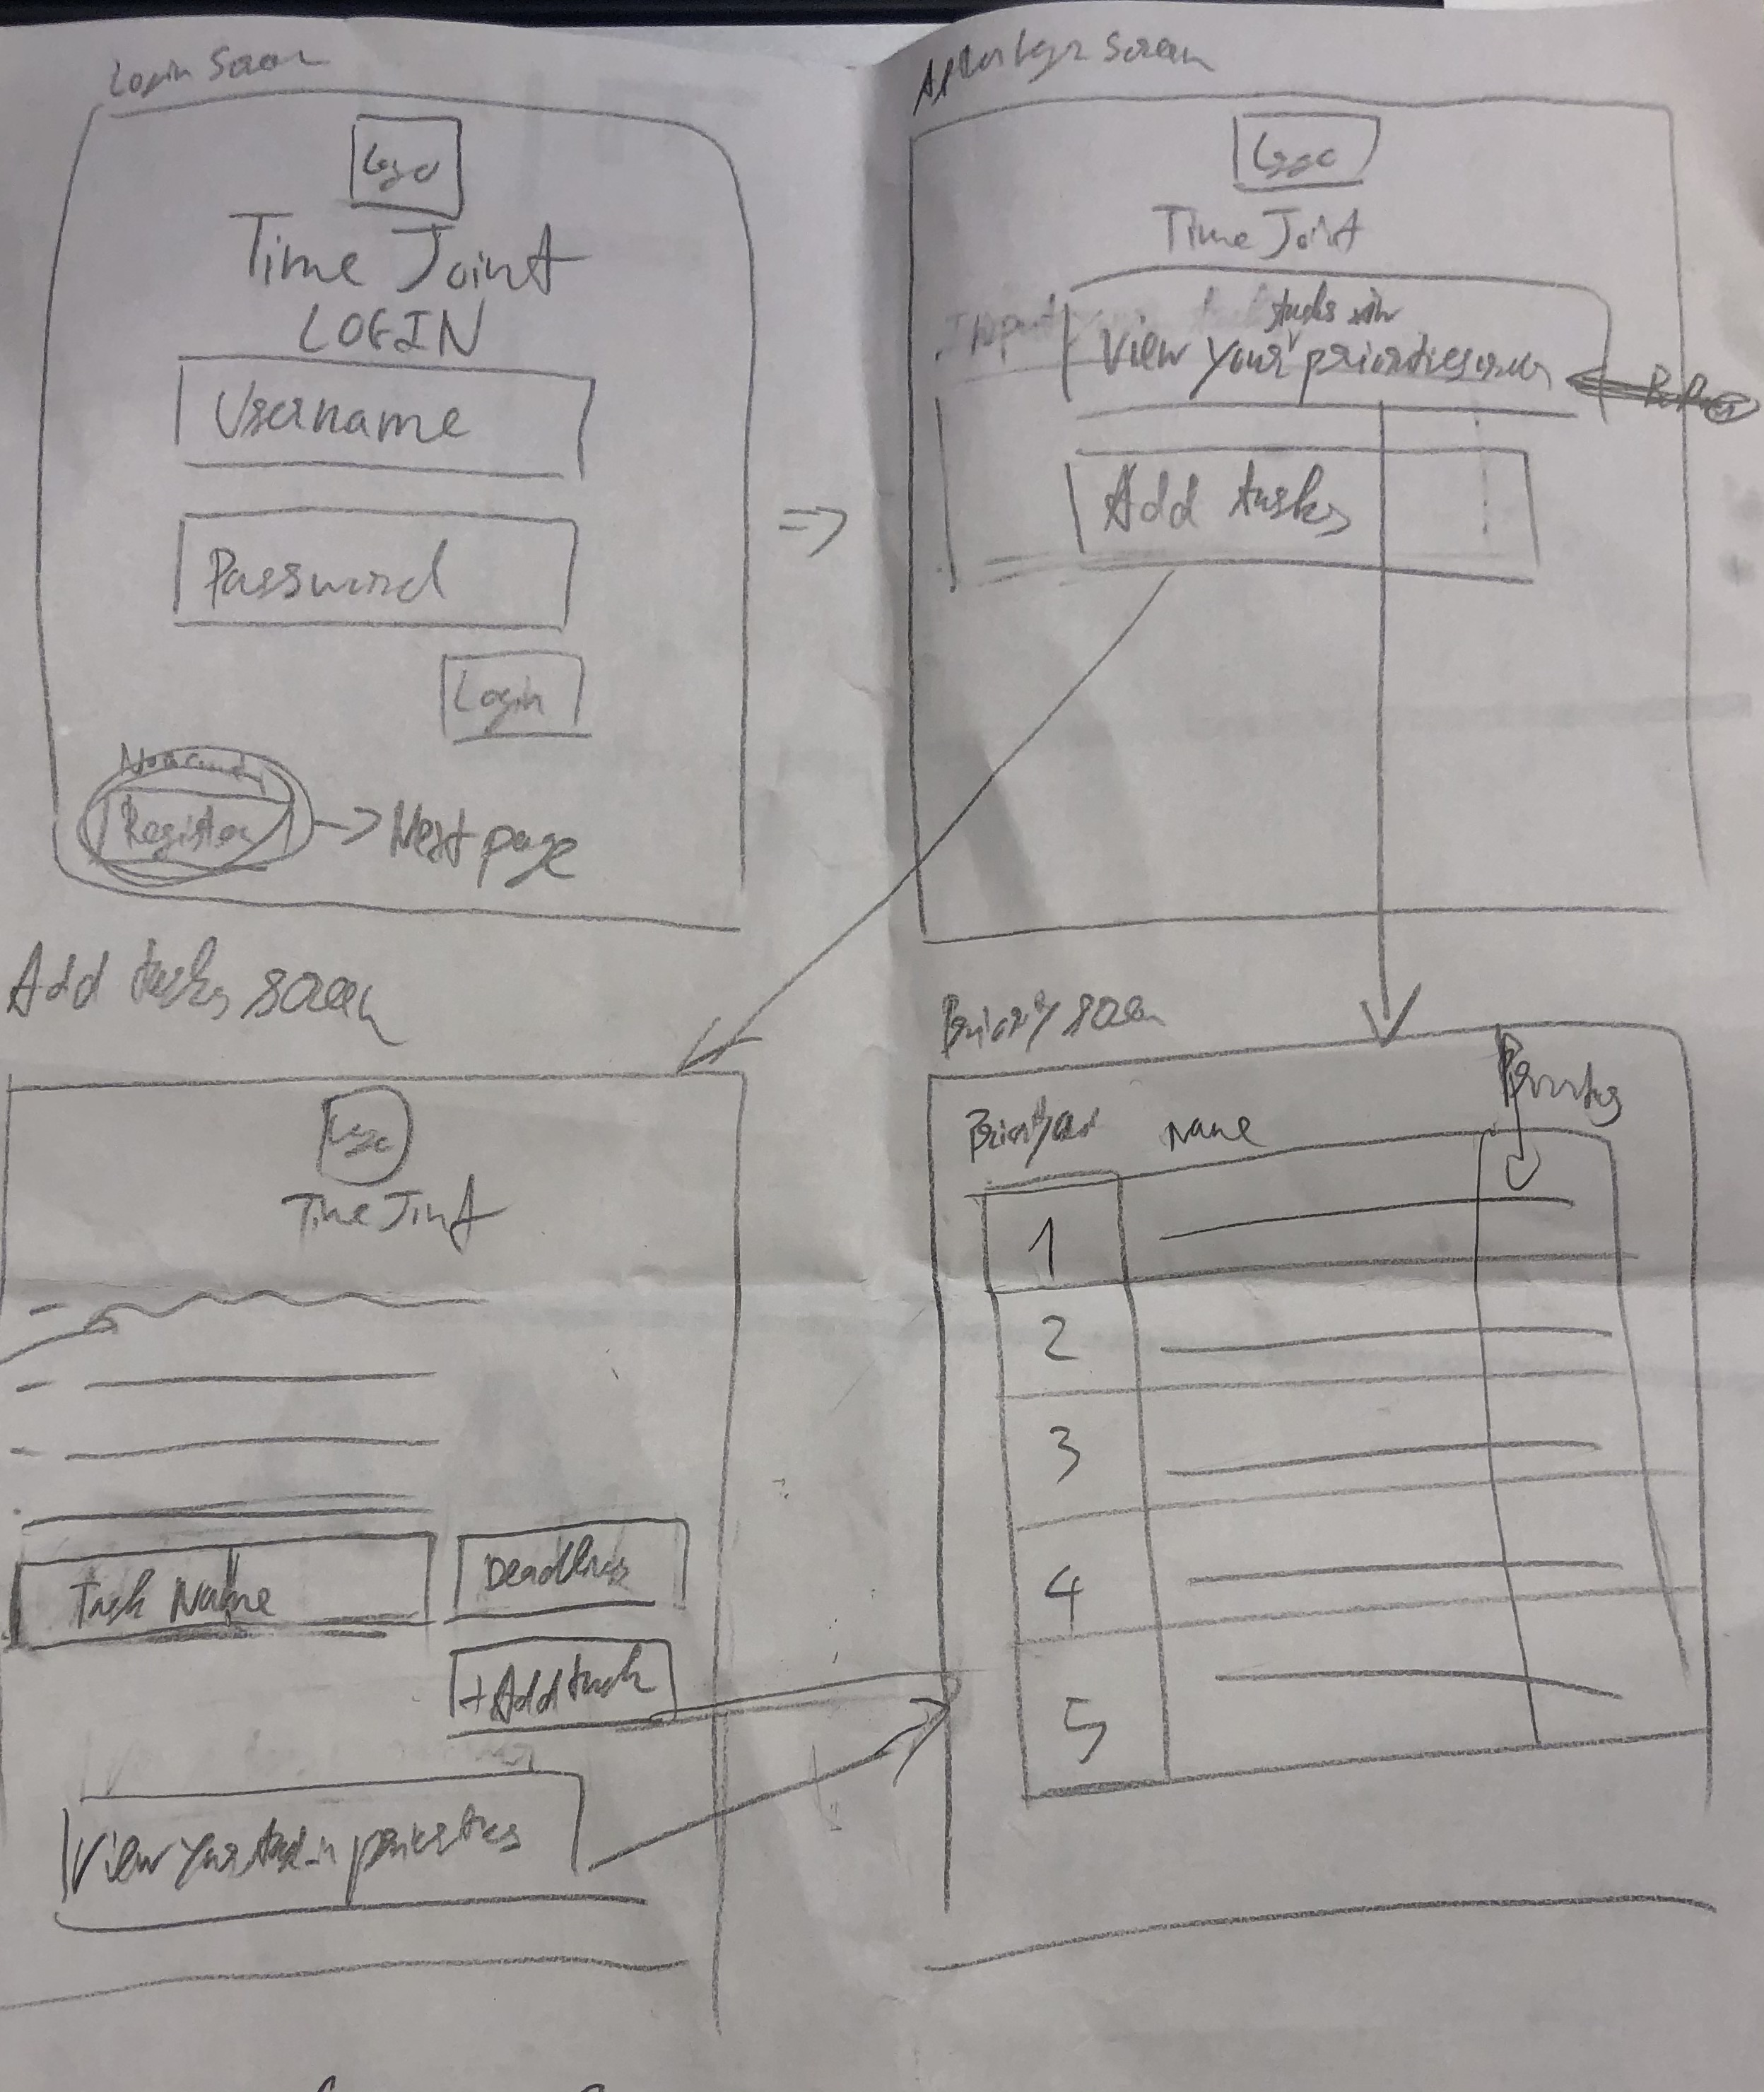 Login Screen
Logo
Time Joint
LOGIN
Username
Password
Login
No account
Register
Next page
After login Screen
Logo
Time Joint
Input
tasks with
View your priorities
Add tasks
Add tasks screen
Logo
Time Joint
Task Name
Deadlines
+Add task
View your task in priorities
Priority screen
Name
1
2
3
4
5